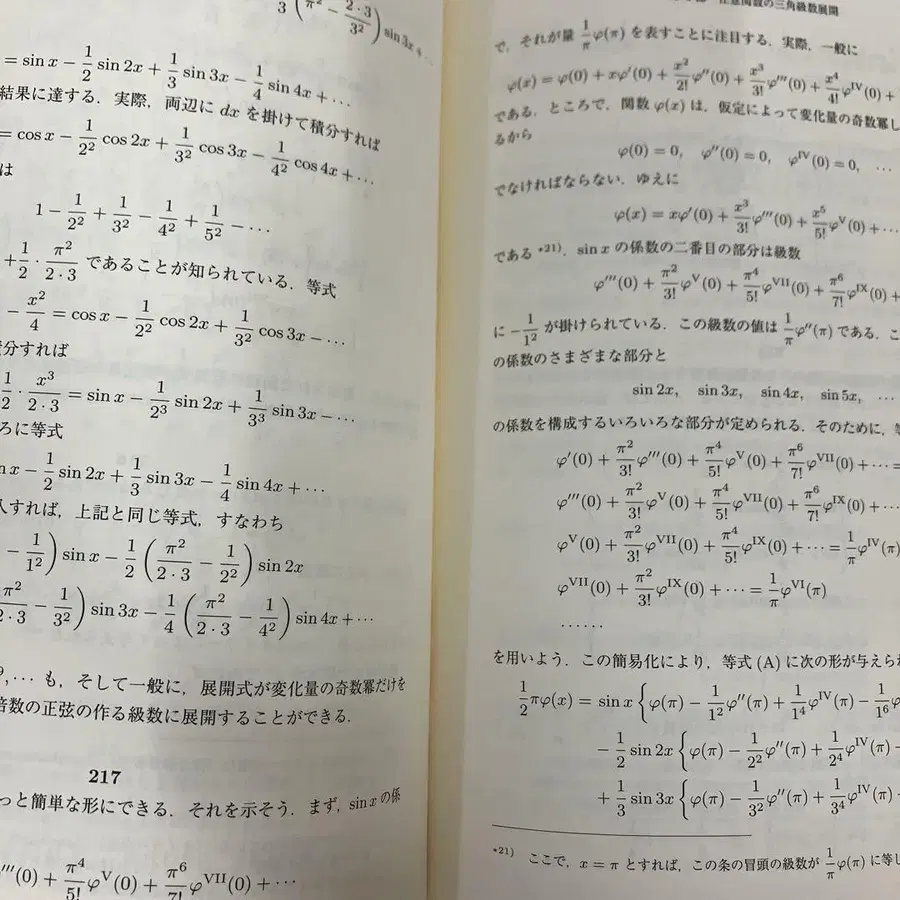 3 ( π² − 2·3/3² ) sin 3x +
= sin x − 1/2 sin 2x + 1/3 sin 3x − 1/4 sin 4x + ⋯
結果に達する．実際，両辺に dx を掛けて積分すれば
= cos x − 1/2² cos 2x + 1/3² cos 3x − 1/4² cos 4x + ⋯
は
1 − 1/2² + 1/3² − 1/4² + 1/5² − ⋯
+ 1/2 · π²/2·3 であることが知られている．等式
− x²/4 = cos x − 1/2² cos 2x + 1/3² cos 3x − ⋯
分すれば
1/2 · x³/2·3 = sin x − 1/2³ sin 2x + 1/3³ sin 3x − ⋯
ろに等式
n x − 1/2 sin 2x + 1/3 sin 3x − 1/4 sin 4x + ⋯
入すれば，上記と同じ等式，すなわち
− 1/1² ) sin x − 1/2 ( π²/2·3 − 1/2² ) sin 2x
π²/2·3 − 1/3² ) sin 3x − 1/4 ( π²/2·3 − 1/4² ) sin 4x + ⋯
9, ⋯ も，そして一般に，展開式が変化量の奇数冪だけを
倍数の正弦の作る級数に展開することができる．
217
っと簡単な形にできる．それを示そう．まず，sin x の係
‴(0) + π⁴/5! φ^V(0) + π⁶/7! φ^VII(0) + ⋯
任意関数の三角級数展開
で，それが量 1/π φ(π) を表すことに注目する．実際，一般に
φ(x) = φ(0) + xφ′(0) + x²/2! φ″(0) + x³/3! φ‴(0) + x⁴/4! φ^IV(0) +
である．ところで，関数 φ(x) は，仮定によって変化量の奇数冪し
るから
φ(0) = 0, φ″(0) = 0, φ^IV(0) = 0, ⋯
でなければならない．ゆえに
φ(x) = xφ′(0) + x³/3! φ‴(0) + x⁵/5! φ^V(0) + ⋯
である *21)．sin x の係数の二番目の部分は級数
φ‴(0) + π²/3! φ^V(0) + π⁴/5! φ^VII(0) + π⁶/7! φ^IX(0) +
に − 1/1² が掛けられている．この級数の値は 1/π φ″(π) である．こ
の係数のさまざまな部分と
sin 2x, sin 3x, sin 4x, sin 5x, ⋯
の係数を構成するいろいろな部分が定められる．そのために，等
φ′(0) + π²/3! φ‴(0) + π⁴/5! φ^V(0) + π⁶/7! φ^VII(0) + ⋯ =
φ‴(0) + π²/3! φ^V(0) + π⁴/5! φ^VII(0) + π⁶/7! φ^IX(0) + ⋯
φ^V(0) + π²/3! φ^VII(0) + π⁴/5! φ^IX(0) + ⋯ = 1/π φ^IV(π)
φ^VII(0) + π²/3! φ^IX(0) + ⋯ = 1/π φ^VI(π)
⋯⋯
を用いよう．この簡易化により，等式 (A) に次の形が与えられ
1/2 πφ(x) = sin x { φ(π) − 1/1² φ″(π) + 1/1⁴ φ^IV(π) − 1/1⁶ φ
− 1/2 sin 2x { φ(π) − 1/2² φ″(π) + 1/2⁴ φ^IV(π) −
+ 1/3 sin 3x { φ(π) − 1/3² φ″(π) + 1/3⁴ φ^IV(π) −
*21) ここで，x = π とすれば，この条の冒頭の級数が 1/π φ(π) に等し